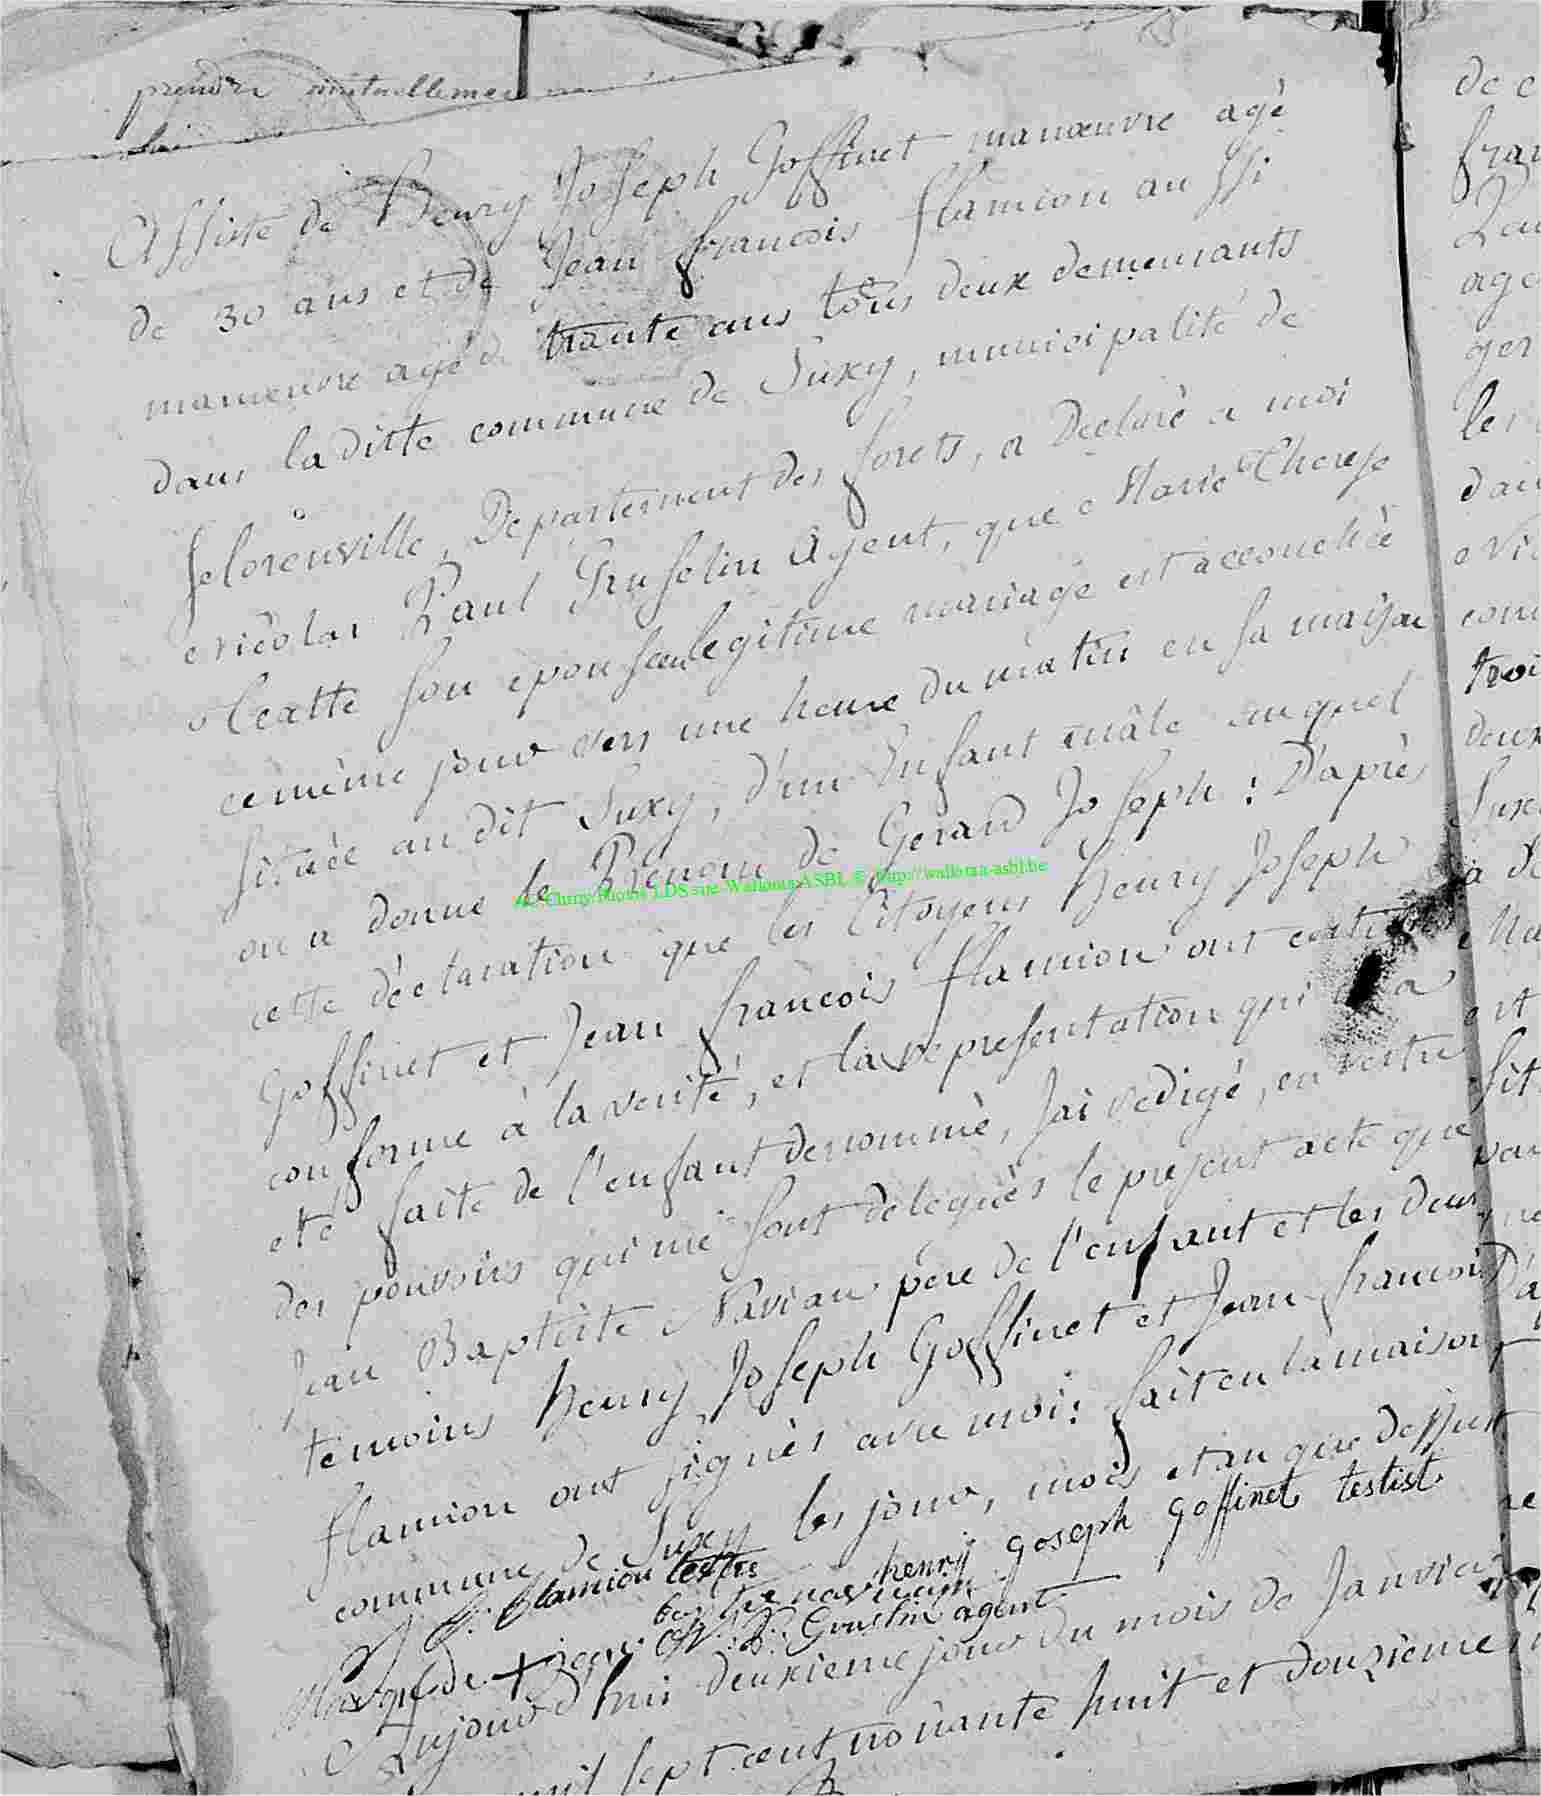 prendre mutuellement
Assisté de Henry Joseph Goffinet manœuvre agé
de 30 ans et de Jean francois flamion aussi
manœuvre agé de trante ans tous deux demeurants
dans la ditte commune de Suxy, municipalité de
florenville, Departement des forets, a declaré a moi
Nicolas Paul Gruselin Agent, que Marie Therese
son epouse en legitime mariage est accouchée
ce même jour vers une heure du matin en sa maison
située au dit Suxy, d'un Enfant mâle auquel
on a donné le Prenom de Gerard Joseph : D'après
cette déclaration que les Citoyens henry Joseph
Goffinet et Jean francois flamion ont certifié
conforme à la verité, et la representation qui a
eté faite de l'enfant denommé, J'ai redigé, en vertu
des pouvoirs qui me sont delegués le present acte que
Jean Baptiste Navian père de l'enfant et les deux
temoins henry Joseph Goffinet et Jean francois
flamion ont signés avec moi : fait en la maison
commune de Suxy les jour, mois et an que dessus
flamion henrij Goseph Goffinet testist
Marque de + Jean N. P. Gruslin agent
Aujourd'hui deuxieme jour du mois de Janvier
mil sept cent nonante huit et douzieme
de c
fran
age
ger
les
dan
com
troi
deux
Suxi
a de
Ma
est
sit
© Cthny Photos LDS site Wallonia ASBL © http://wallonia-asbl.be